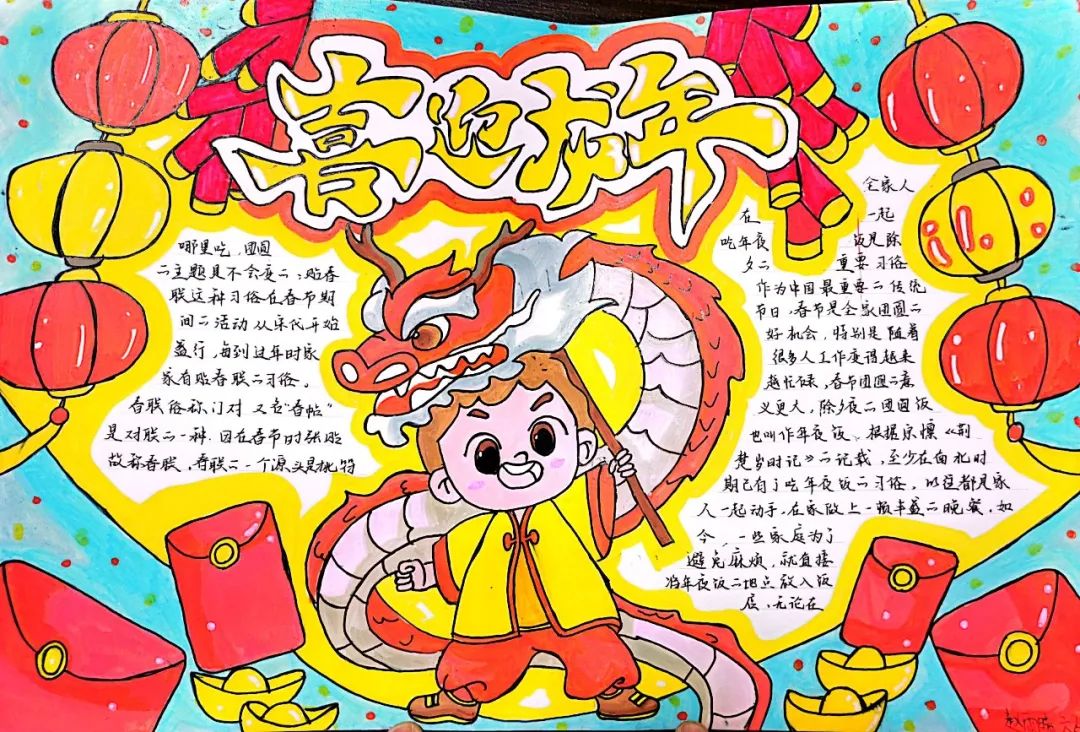 喜迎龙年
全家人
在 一起
吃年夜 饭是除
夕的 重要习俗
作为中国最重要的传统
节日,春节是全家团圆的
好机会,特别是随着
很多人工作变得越来
越忙碌,春节团圆的意
义更大,除夕夜的团圆饭
也叫作年夜饭,根据宗懔《荆
楚岁时记》的记载,至少在南北时
期已有了吃年夜饭的习俗,以往都是家
人一起动手,在家做上一顿丰盛的晚宴,如
今,一些家庭为了
避免麻烦,就直接
将年夜饭的地点放入饭
店,无论在
哪里吃,团圆
的主题是不会变的,贴春
联这种习俗在春节期
间的活动从宋代开始
盛行,每到过年时家
家有贴春联的习俗。
春联俗称门对 又名"春帖"
是对联的一种,因在春节时张贴
故称春联,春联的一个源头是桃符